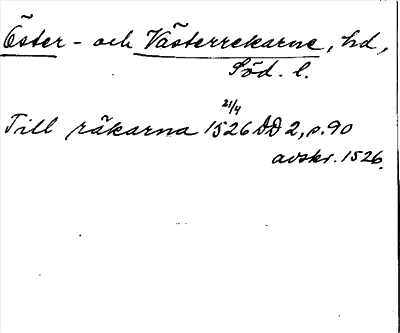 Öster- och Västerrekarne, hd,
Söd. l.
Till räkarna 1526 21/4 DD 2, s. 90
avskr. 1526.